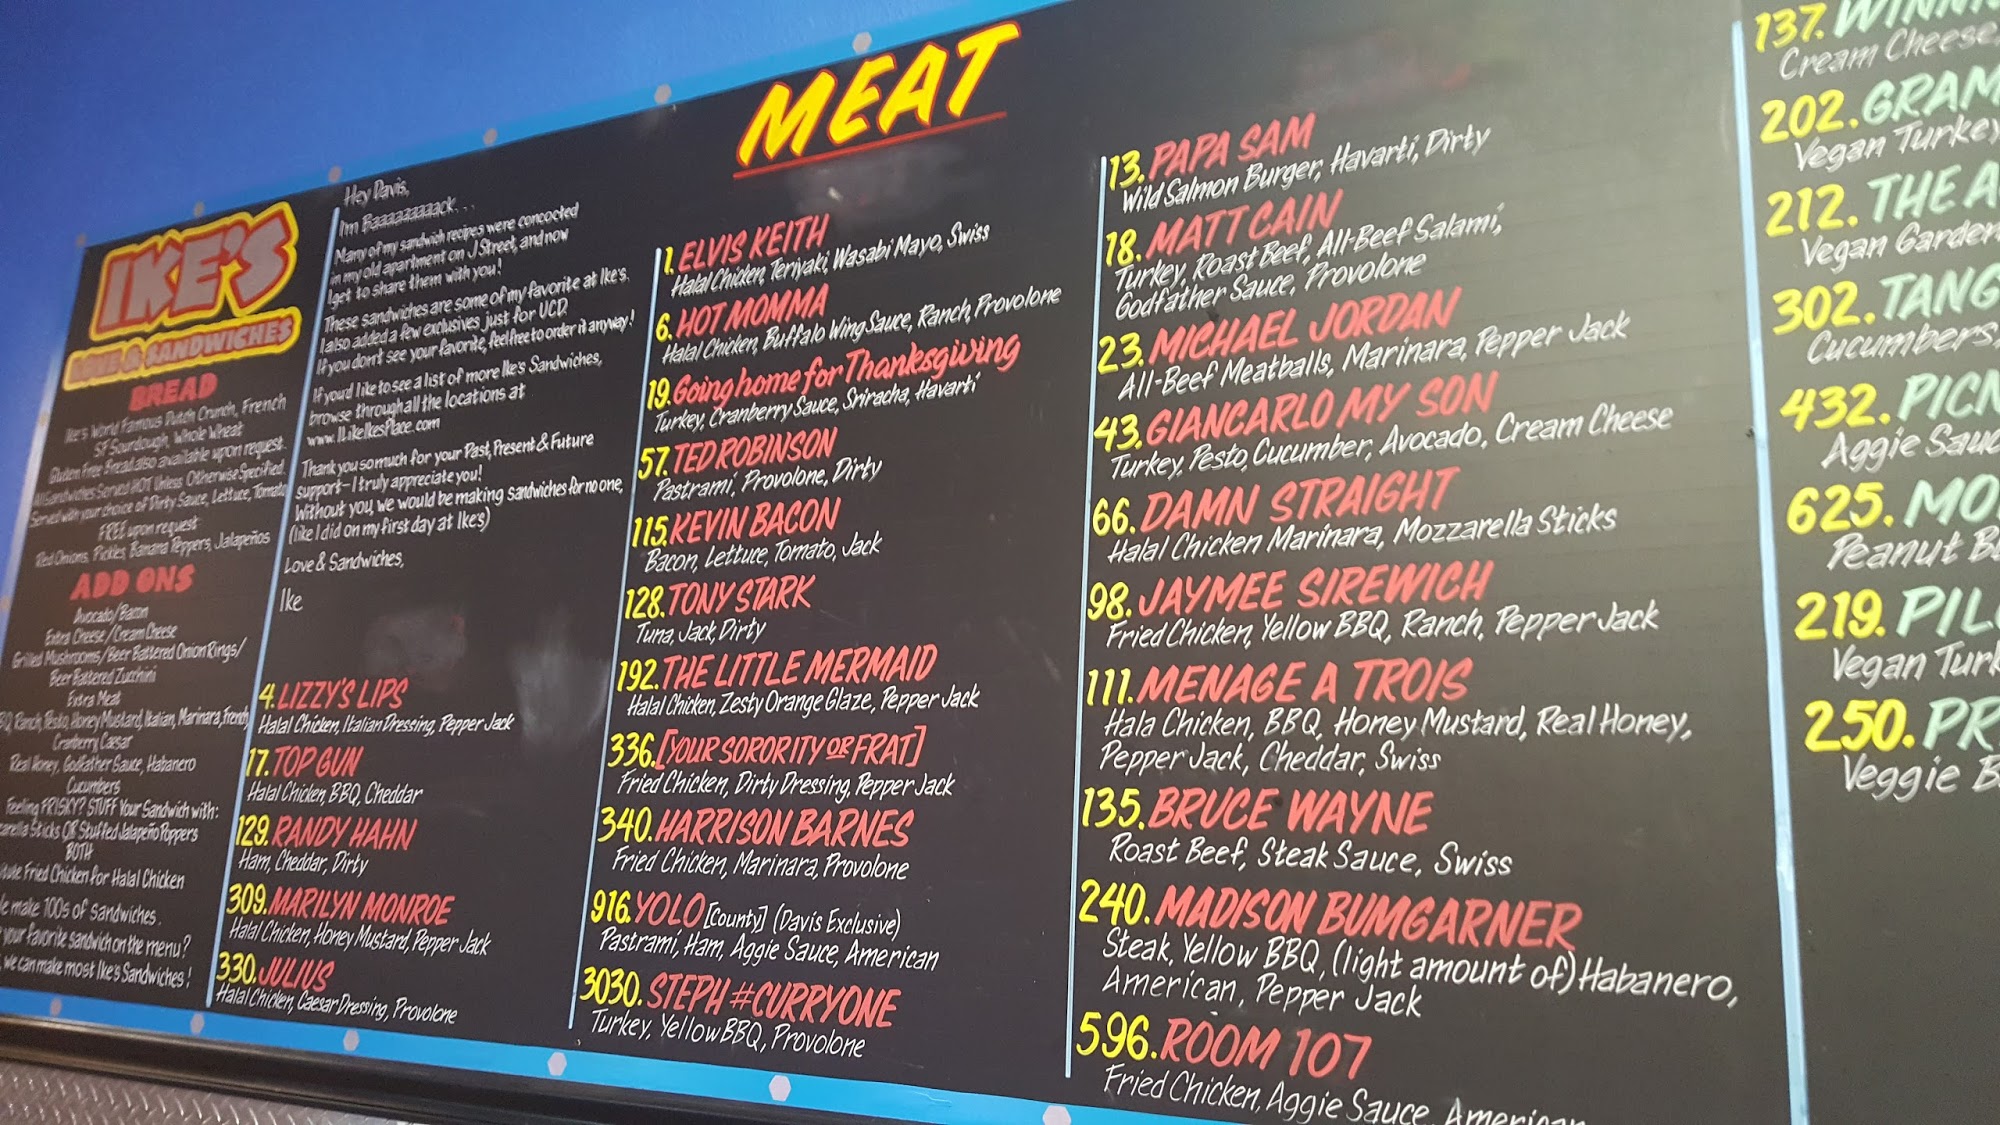 IKE'S
LOVE & SANDWICHES
BREAD
Ike's World Famous Dutch Crunch, French
SF Sourdough, Whole Wheat
Gluten Free Bread also available upon request.
All Sandwiches Served HOT Unless Otherwise Specified.
Served with your choice of Dirty Sauce, Lettuce, Tomato
FREE upon request
Red Onions, Pickles, Banana Peppers, Jalapeños
ADD ONS
Avocado/Bacon
Extra Cheese/Cream Cheese
Grilled Mushrooms/Beer Battered Onion Rings/
Beer Battered Zucchini
Extra Meat
Ranch, Pesto, Honey Mustard, Italian, Marinara, French
Cranberry Caesar
Real Honey, Godfather Sauce, Habanero
Cucumbers
Feeling FRISKY? STUFF Your Sandwich with:
Sticks OR Stuffed Jalapeño Poppers
BOTH
Fried Chicken for Halal Chicken
make 100s of Sandwiches.
your favorite sandwich on the menu?
we can make most Ike's Sandwiches!
Hey Davis,
I'm Baaaaaaaaack...
Many of my sandwich recipes were concocted
in my old apartment on J Street, and now
I get to share them with you!
These sandwiches are some of my favorite at Ike's.
I also added a few exclusives just for UCD.
If you don't see your favorite, feel free to order it anyway!
If you'd like to see a list of more Ike's Sandwiches,
browse through all the locations at
www.ILikeIkesPlace.com
Thank you so much for your Past, Present & Future
support - I truly appreciate you!
Without you, we would be making sandwiches for no one,
(like I did on my first day at Ike's)
Love & Sandwiches,
Ike
4. LIZZY'S LIPS
Halal Chicken, Italian Dressing, Pepper Jack
17. TOP GUN
Halal Chicken, BBQ, Cheddar
129. RANDY HAHN
Ham, Cheddar, Dirty
309. MARILYN MONROE
Halal Chicken, Honey Mustard, Pepper Jack
330. JULIUS
Halal Chicken, Caesar Dressing, Provolone
MEAT
1. ELVIS KEITH
Halal Chicken, Teriyaki, Wasabi Mayo, Swiss
6. HOT MOMMA
Halal Chicken, Buffalo Wing Sauce, Ranch, Provolone
19. Going home for Thanksgiving
Turkey, Cranberry Sauce, Sriracha, Havarti
57. TED ROBINSON
Pastrami, Provolone, Dirty
115. KEVIN BACON
Bacon, Lettuce, Tomato, Jack
128. TONY STARK
Tuna, Jack, Dirty
192. THE LITTLE MERMAID
Halal Chicken, Zesty Orange Glaze, Pepper Jack
336. [YOUR SORORITY OR FRAT]
Fried Chicken, Dirty Dressing, Pepper Jack
340. HARRISON BARNES
Fried Chicken, Marinara, Provolone
916. YOLO [County] (Davis Exclusive)
Pastrami, Ham, Aggie Sauce, American
3030. STEPH #CURRYONE
Turkey, Yellow BBQ, Provolone
13. PAPA SAM
Wild Salmon Burger, Havarti, Dirty
18. MATT CAIN
Turkey, Roast Beef, All-Beef Salami,
Godfather Sauce, Provolone
23. MICHAEL JORDAN
All-Beef Meatballs, Marinara, Pepper Jack
43. GIANCARLO MY SON
Turkey, Pesto, Cucumber, Avocado, Cream Cheese
66. DAMN STRAIGHT
Halal Chicken Marinara, Mozzarella Sticks
98. JAYMEE SIREWICH
Fried Chicken, Yellow BBQ, Ranch, Pepper Jack
111. MENAGE A TROIS
Hala Chicken, BBQ, Honey Mustard, Real Honey,
Pepper Jack, Cheddar, Swiss
135. BRUCE WAYNE
Roast Beef, Steak Sauce, Swiss
240. MADISON BUMGARNER
Steak, Yellow BBQ, (light amount of) Habanero,
American, Pepper Jack
596. ROOM 107
Fried Chicken, Aggie Sauce, American
137. WINNI
Cream Cheese,
202. GRAM
Vegan Turkey
212. THE A
Vegan Garden
302. TANG
Cucumbers,
432. PICN
Aggie Sauc
625. MO
Peanut B
219. PIL
Vegan Turk
250. PR
Veggie B